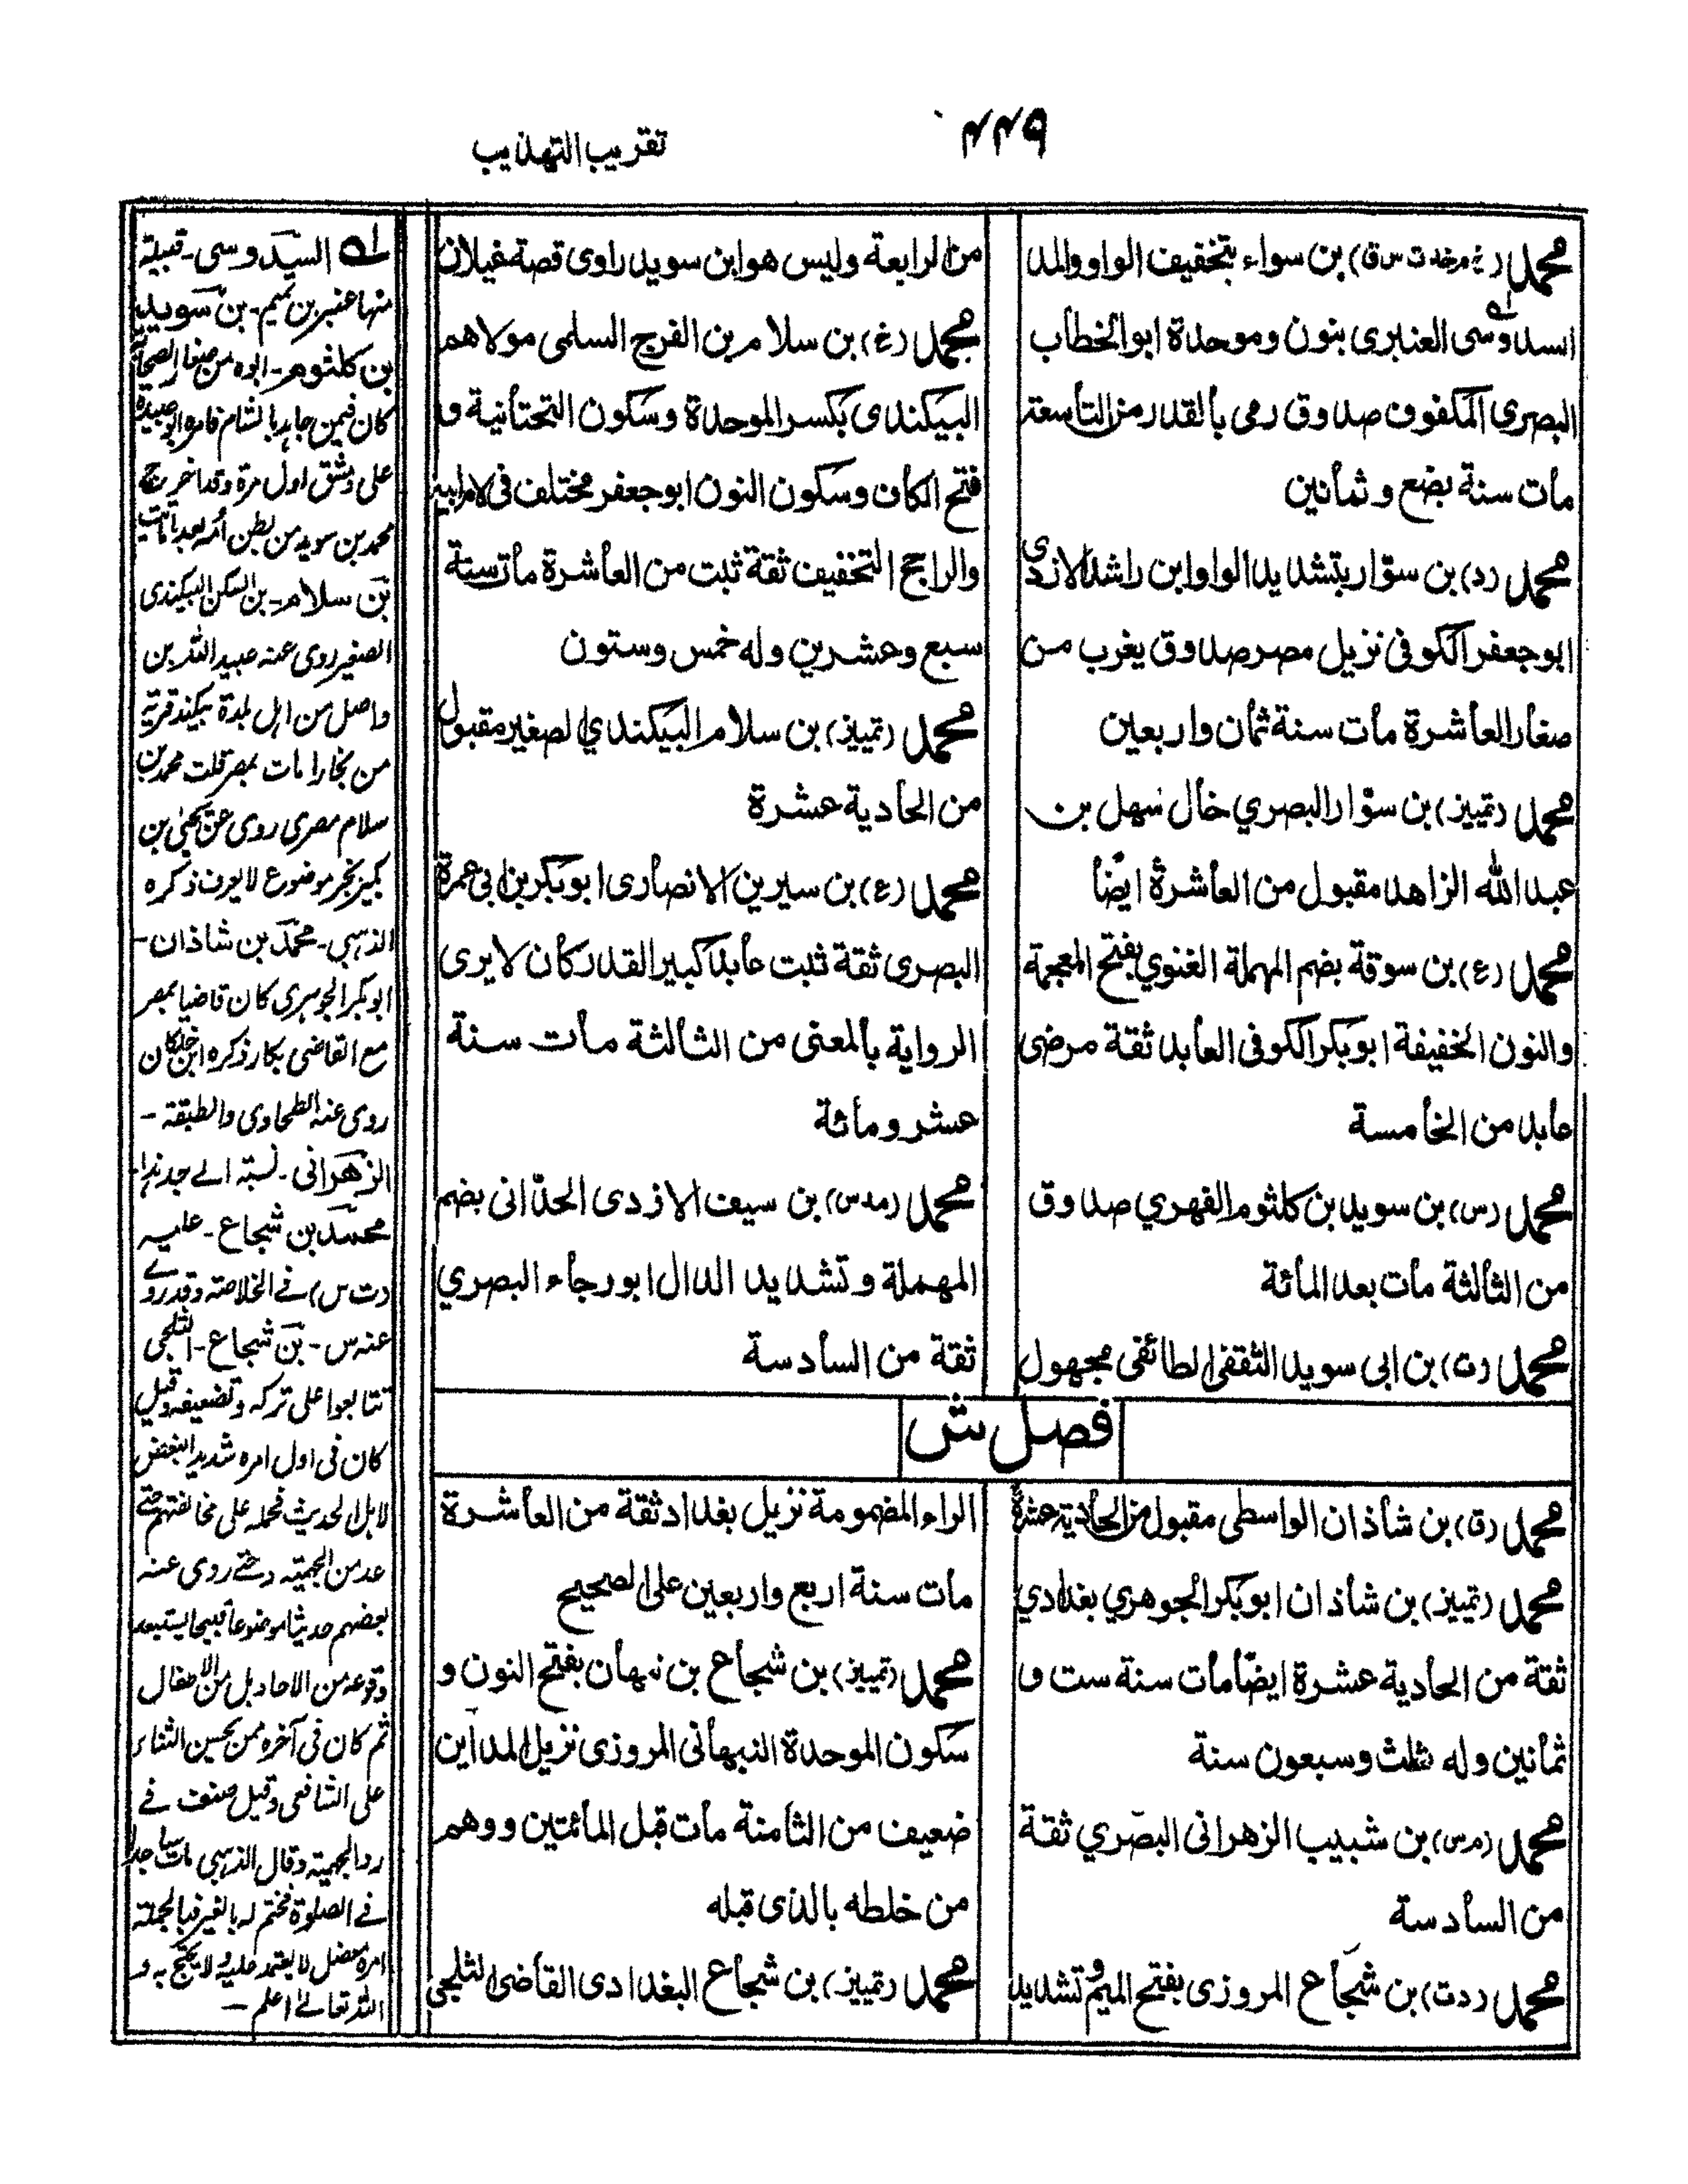 تقريب التهذيب
٤٤٩
محمد (خ م خد ت س ق) بن سواء بتخفيف الواو والمد
السدوسى العنبرى بنون وموحدة ابو الخطاب
البصرى المكفوف صدوق رمى بالقدر من التاسعة
مات سنة بضع وثمانين
محمد (د) بن سوّار بتشديد الواو ابن راشد الازدى
ابو جعفر الكوفى نزيل مصر صدوق يغرب من
صغار العاشرة مات سنة ثمان واربعين
محمد (تمييز) بن سوّار البصري خال سهل بن
عبد الله الزاهد مقبول من العاشرة ايضًا
محمد (ع) بن سوقة بضم المهملة الغنوي بفتح المعجمة
والنون الخفيفة ابو بكر الكوفى العابد ثقة مرضى
عابد من الخامسة
محمد (س) بن سويد بن كلثوم الفهري صدوق
من الثالثة مات بعد المائة
محمد (ت) بن ابى سويد الثقفى الطائفى مجهول
من الرابعة وليس هو ابن سويد راوى قصة غيلان
محمد (خ) بن سلام بن الفرج السلمى مولاهم
البيكندى بكسر الموحدة وسكون التحتانية و
فتح الكاف وسكون النون ابو جعفر مختلف فى لام ابيه
والراجح التخفيف ثقة ثبت من العاشرة مات سنة
سبع وعشرين وله خمس وستون
محمد (تمييز) بن سلام البيكندي الصغير مقبول
من الحادية عشرة
محمد (ع) بن سيرين الانصارى ابو بكر بن ابى عمرة
البصرى ثقة ثبت عابد كبير القدر كان لا يرى
الرواية بالمعنى من الثالثة مات سنة
عشر ومائة
محمد (مد س) بن سيف الازدى الحدّانى بضم
المهملة وتشديد الدال ابو رجاء البصري
ثقة من السادسة
فصل ش
محمد (ق) بن شاذان الواسطى مقبول من الحادية عشرة
محمد (تمييز) بن شاذان ابو بكر الجوهري بغدادي
ثقة من الحادية عشرة ايضًا مات سنة ست و
ثمانين وله ثلث وسبعون سنة
محمد (م س) بن شبيب الزهرانى البصري ثقة
من السادسة
محمد (د ت) بن شجاع المروزى بفتح الميم وتشديد
الراء المضمومة نزيل بغداد ثقة من العاشرة
مات سنة اربع واربعين على الصحيح
محمد (تمييز) بن شجاع بن نبهان بفتح النون و
سكون الموحدة النبهانى المروزى نزيل المداين
ضعيف من الثامنة مات قبل المائتين ووهم
من خلطه بالذى قبله
محمد (تمييز) بن شجاع البغدادى القاضى الثلجى
له السدوسى - قبيلة
منها عنبر بن تميم - بن سويد
بن كلثوم - ابوه من صغار الصحابة
كان فيمن جاهد بالشام فامره ابو عبيدة
على دمشق اول مرة وقد اخرج
محمد بن سويد من بطن امه بعد ما ماتت
بن سلام - بن السكن البيكندى
الصغير روى عنه عبيد الله بن
واصل من اهل بلدة بيكند قرية
من بخارا مات بمصر قلت محمد بن
سلام مصرى روى عن يحيى بن
بكير بخبر موضوع لا يعرف ذكره
الذهبى - محمد بن شاذان -
ابو بكر الجوهرى كان قاضيا بمصر
مع القاضى بكار ذكره ابن خلكان
روى عنه الطحاوى والطبقة -
الزهرانى - نسبته الے جد لهذا
محمد بن شجاع - عليه
(د ت س) فے الخلاصة وقد روے
عنه س - بن شجاع - الثلجى
تتابعوا على تركه وتضعيفه وقيل
كان فى اول امره شديد البغض
لاهل الحديث فحمله على مخالفتهم حتے
عد من الجهمية وحتے روى عنه
بعضهم حديثا موضوعا قبيحا يستبعد
وقوعه من الاحاد بل من الاطفال
ثم كان فى آخره ممن يحسن الثناء
على الشافعى وقيل صنف فے
رد الجهمية وقال الذهبى مات ساجدا
فے الصلوة فختم له بالخير فبالجملة
امره معضل لا يعتمد عليه ولا يحتج به و
الله تعالے اعلم -